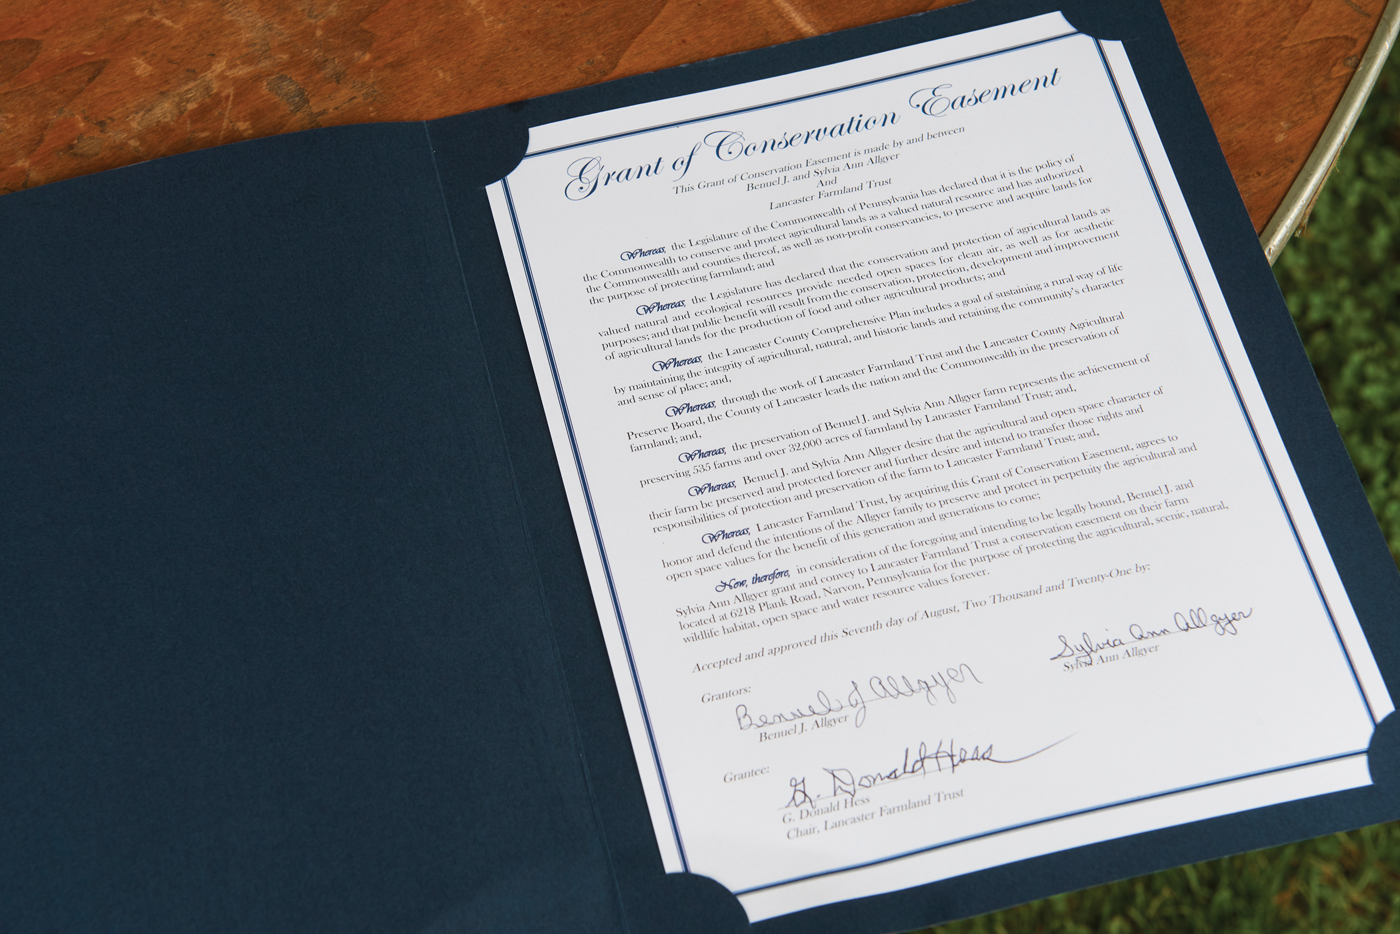 Grant of Conservation Easement
This Grant of Conservation Easement is made by and between
Benuel J. and Sylvia Ann Allgyer
And
Lancaster Farmland Trust
Whereas, the Legislature of the Commonwealth of Pennsylvania has declared that it is the policy of
the Commonwealth to conserve and protect agricultural lands as a valued natural resource and has authorized
the Commonwealth and counties thereof, as well as non-profit conservancies, to preserve and acquire lands for
the purpose of protecting farmland; and
Whereas, the Legislature has declared that the conservation and protection of agricultural lands as
valued natural and ecological resources provide needed open spaces for clean air, as well as for aesthetic
purposes; and that public benefit will result from the conservation, protection, development and improvement
of agricultural lands for the production of food and other agricultural products; and
Whereas, the Lancaster County Comprehensive Plan includes a goal of sustaining a rural way of life
by maintaining the integrity of agricultural, natural, and historic lands and retaining the community's character
and sense of place; and,
Whereas, through the work of Lancaster Farmland Trust and the Lancaster County Agricultural
Preserve Board, the County of Lancaster leads the nation and the Commonwealth in the preservation of
farmland; and,
Whereas, the preservation of Benuel J. and Sylvia Ann Allgyer farm represents the achievement of
preserving 535 farms and over 32,000 acres of farmland by Lancaster Farmland Trust; and,
Whereas, Benuel J. and Sylvia Ann Allgyer desire that the agricultural and open space character of
their farm be preserved and protected forever and further desire and intend to transfer those rights and
responsibilities of protection and preservation of the farm to Lancaster Farmland Trust; and,
Whereas, Lancaster Farmland Trust, by acquiring this Grant of Conservation Easement, agrees to
honor and defend the intentions of the Allgyer family to preserve and protect in perpetuity the agricultural and
open space values for the benefit of this generation and generations to come;
Now, therefore, in consideration of the foregoing and intending to be legally bound, Benuel J. and
Sylvia Ann Allgyer grant and convey to Lancaster Farmland Trust a conservation easement on their farm
located at 6218 Plank Road, Narvon, Pennsylvania for the purpose of protecting the agricultural, scenic, natural,
wildlife habitat, open space and water resource values forever.
Accepted and approved this Seventh day of August, Two Thousand and Twenty-One by:
Grantors:
Benuel J Allgyer
Benuel J. Allgyer
Sylvia Ann Allgyer
Sylvia Ann Allgyer
Grantee:
G. Donald Hess
G. Donald Hess
Chair, Lancaster Farmland Trust